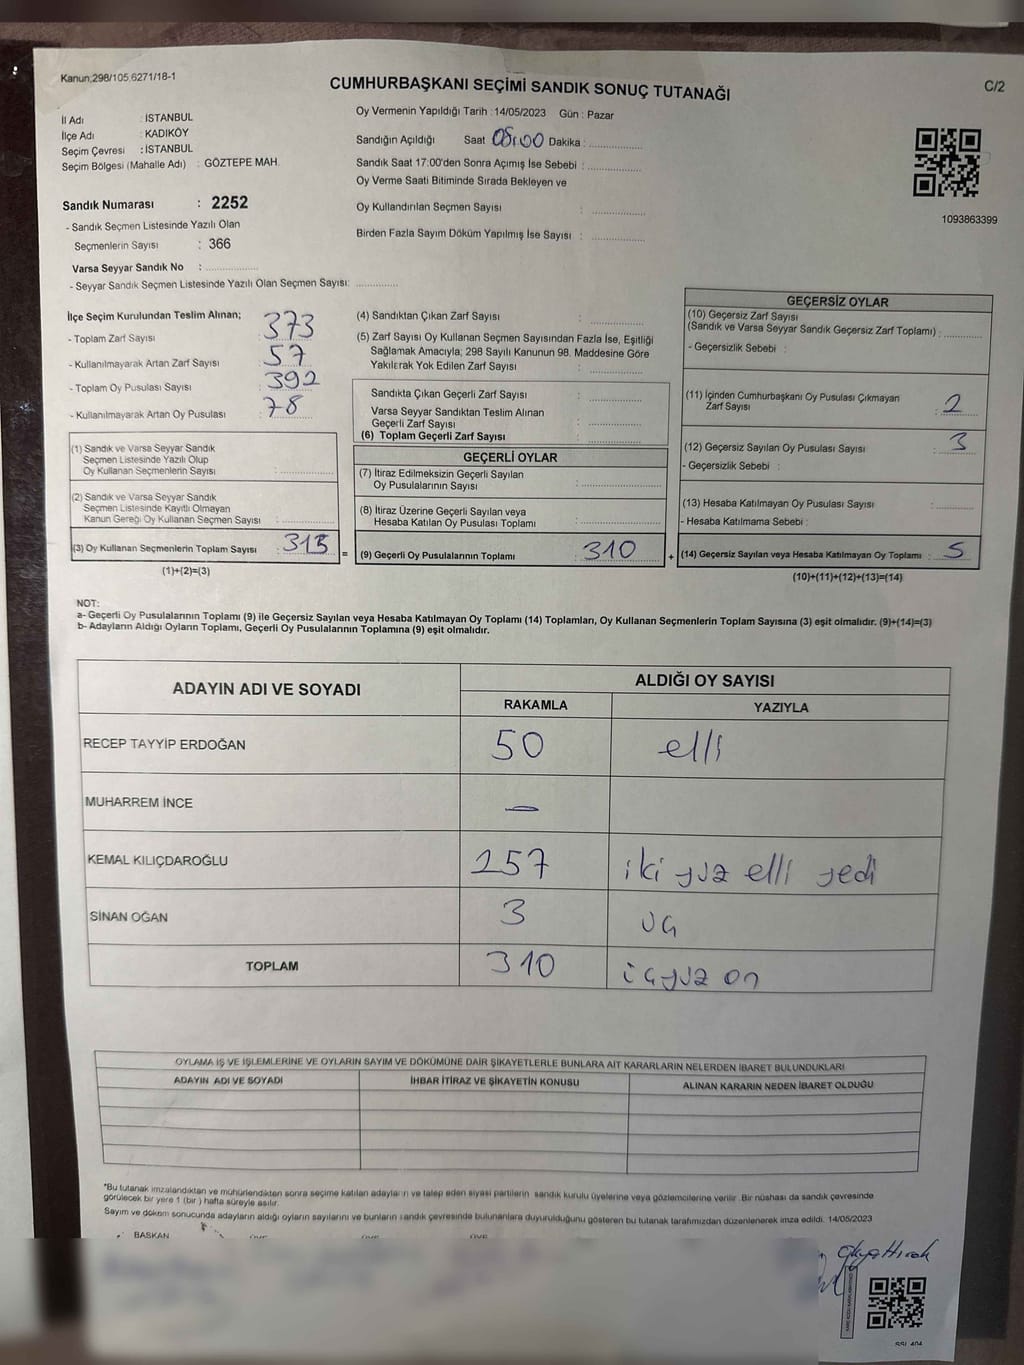 Kanun;298/105,6271/18-1
CUMHURBAŞKANI SEÇİMİ SANDIK SONUÇ TUTANAĞI
C/2
İl Adı : İSTANBUL
İlçe Adı : KADIKÖY
Seçim Çevresi : İSTANBUL
Seçim Bölgesi (Mahalle Adı) : GÖZTEPE MAH.
Sandık Numarası : 2252
- Sandık Seçmen Listesinde Yazılı Olan
Seçmenlerin Sayısı : 366
Varsa Seyyar Sandık No : ..................
- Seyyar Sandık Seçmen Listesinde Yazılı Olan Seçmen Sayısı: ..............
Oy Vermenin Yapıldığı Tarih : 14/05/2023 Gün : Pazar
Sandığın Açıldığı Saat 08:00 Dakika : ..................
Sandık Saat 17:00'den Sonra Açımış İse Sebebi : ..................
Oy Verme Saati Bitiminde Sırada Bekleyen ve
Oy Kullandırılan Seçmen Sayısı : ..................
Birden Fazla Sayım Döküm Yapılmış İse Sayısı : ..................
1093863399
İlçe Seçim Kurulundan Teslim Alınan;
- Toplam Zarf Sayısı : 373
- Kullanılmayarak Artan Zarf Sayısı : 57
- Toplam Oy Pusulası Sayısı : 392
- Kullanılmayarak Artan Oy Pusulası : 78
(1) Sandık ve Varsa Seyyar Sandık
Seçmen Listesinde Yazılı Olup
Oy Kullanan Seçmenlerin Sayısı : ..................
(2) Sandık ve Varsa Seyyar Sandık
Seçmen Listesinde Kayıtlı Olmayan
Kanun Gereği Oy Kullanan Seçmen Sayısı : ..................
(3) Oy Kullanan Seçmenlerin Toplam Sayısı : 315 =
(1)+(2)=(3)
(4) Sandıktan Çıkan Zarf Sayısı : ..................
(5) Zarf Sayısı Oy Kullanan Seçmen Sayısından Fazla İse, Eşitliği
Sağlamak Amacıyla; 298 Sayılı Kanunun 98. Maddesine Göre
Yakılarak Yok Edilen Zarf Sayısı : ..................
Sandıkta Çıkan Geçerli Zarf Sayısı : ..................
Varsa Seyyar Sandıktan Teslim Alınan
Geçerli Zarf Sayısı : ..................
(6) Toplam Geçerli Zarf Sayısı : ..................
GEÇERLİ OYLAR
(7) İtiraz Edilmeksizin Geçerli Sayılan
Oy Pusulalarının Sayısı : ..................
(8) İtiraz Üzerine Geçerli Sayılan veya
Hesaba Katılan Oy Pusulası Toplamı : ..................
(9) Geçerli Oy Pusulalarının Toplamı : 310 +
GEÇERSİZ OYLAR
(10) Geçersiz Zarf Sayısı
(Sandık ve Varsa Seyyar Sandık Geçersiz Zarf Toplamı) : ..............
- Geçersizlik Sebebi :
(11) İçinden Cumhurbaşkanı Oy Pusulası Çıkmayan
Zarf Sayısı : 2
(12) Geçersiz Sayılan Oy Pusulası Sayısı : 3
- Geçersizlik Sebebi :
(13) Hesaba Katılmayan Oy Pusulası Sayısı : ..............
- Hesaba Katılmama Sebebi :
(14) Geçersiz Sayılan veya Hesaba Katılmayan Oy Toplamı : 5
(10)+(11)+(12)+(13)=(14)
NOT:
a- Geçerli Oy Pusulalarının Toplamı (9) ile Geçersiz Sayılan veya Hesaba Katılmayan Oy Toplamı (14) Toplamları, Oy Kullanan Seçmenlerin Toplam Sayısına (3) eşit olmalıdır. (9)+(14)=(3)
b- Adayların Aldığı Oyların Toplamı, Geçerli Oy Pusulalarının Toplamına (9) eşit olmalıdır.
ADAYIN ADI VE SOYADI ALDIĞI OY SAYISI
RAKAMLA YAZIYLA
RECEP TAYYİP ERDOĞAN 50 elli
MUHARREM İNCE —
KEMAL KILIÇDAROĞLU 257 iki yüz elli yedi
SİNAN OĞAN 3 üç
TOPLAM 310 üçyüz on
OYLAMA İŞ VE İŞLEMLERİNE VE OYLARIN SAYIM VE DÖKÜMÜNE DAİR ŞİKAYETLERLE BUNLARA AİT KARARLARIN NELERDEN İBARET BULUNDUKLARI
ADAYIN ADI VE SOYADI İHBAR İTİRAZ VE ŞİKAYETİN KONUSU ALINAN KARARIN NEDEN İBARET OLDUĞU
*Bu tutanak imzalandıktan ve mühürlendikten sonra seçime katılan adayların ve talep eden siyasi partilerin sandık kurulu üyelerine veya gözlemcilerine verilir. Bir nüshası da sandık çevresinde
görülecek bir yere 1 (bir) hafta süreyle asılır.
Sayım ve döküm sonucunda adayların aldığı oyların sayılarını ve bunların sandık çevresinde bulunanlara duyurulduğunu gösteren bu tutanak tarafımızdan düzenlenerek imza edildi. 14/05/2023
BAŞKAN ÜYE ÜYE ÜYE